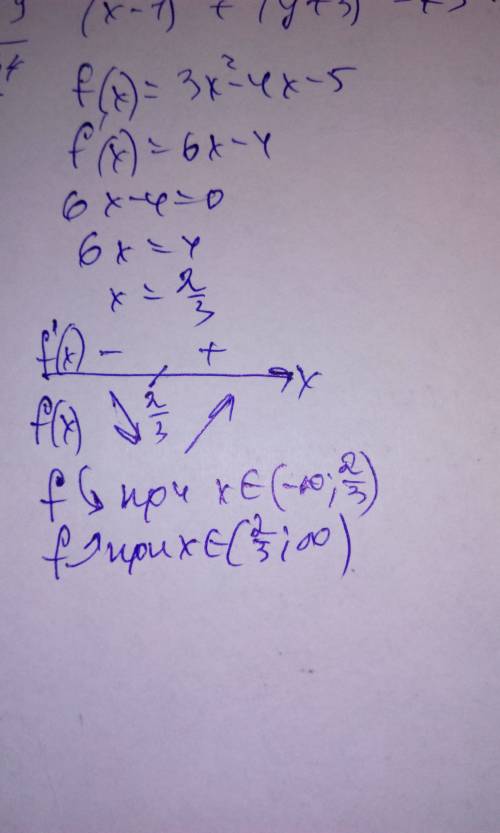 (x-1) + (y+3)
f(x) = 3x²-4x-5
f'(x) = 6x-4
6x-4=0
6x=4
x = 2/3
f'(x) - +
x
f(x) ↘ 2/3 ↗
f ↘ при x∈(-∞; 2/3)
f ↗ при x∈(2/3; ∞)